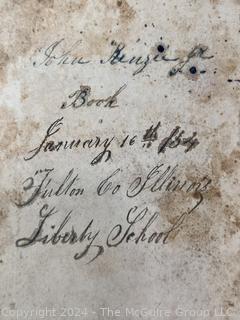 John Kinzie Jr
Book
January 16th 154
Fulton Co Illinois
Liberty School
Copyright 2024 - The McGuire Group LLC